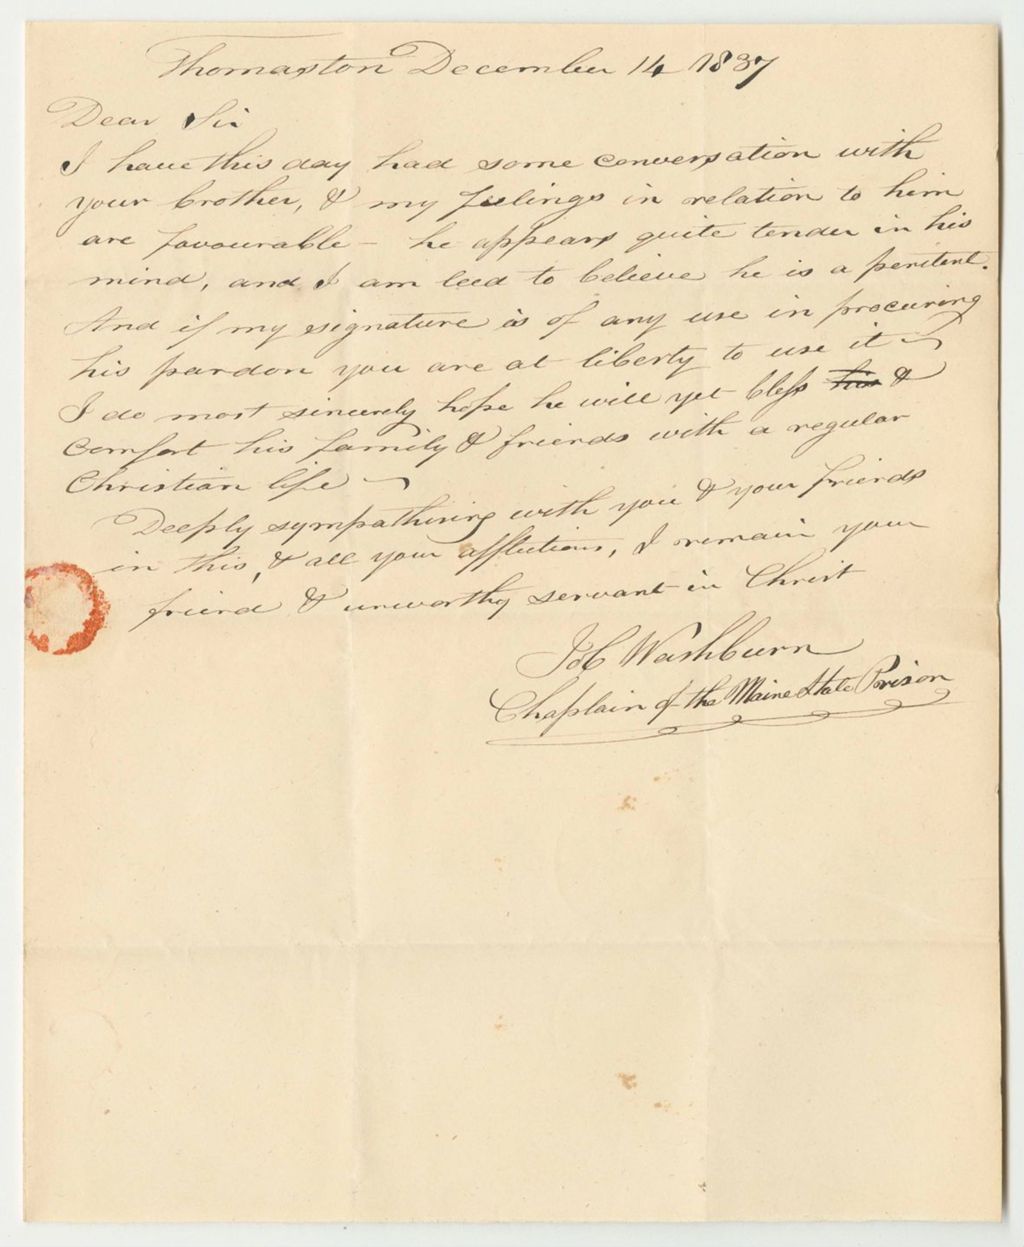 Thomaston December 14 1837
Dear Sir
I have this day had some conversation with
your brother, & my feelings in relation to him
are favourable – he appears quite tender in his
mind, and I am leed to believe he is a penitent.
And if my signature is of any use in procuring
his pardon you are at liberty to use it –
I do most sincerely hope he will yet bless his &
comfort his family & friends with a regular
Christian life –
Deeply sympathising with you & your friends
in this, & all your afflictions, I remain your
friend & unworthy servant in Christ
Job Washburn
Chaplain of the Maine State Prison